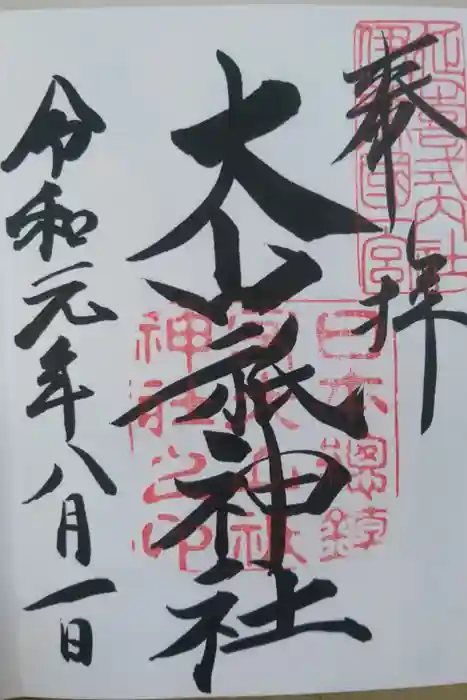 奉拝
大山祇神社
令和元年八月一日
日本總鎮
守大山祇
神社之印